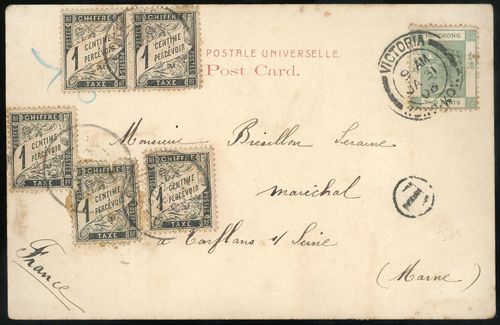 POSTALE UNIVERSELLE.
Post Card.
CHIFFRE
1 CENTIME
À PERCEVOIR
TAXE
CHIFFRE
1 CENTIME
À PERCEVOIR
TAXE
HONGKONG
VICTORIA
AM
JA 31
HONG-KONG
CHIFFRE
1 CENTIME
À PERCEVOIR
TAXE
CHIFFRE
1 CENTIME
À PERCEVOIR
TAXE
CHIFFRE
1 CENTIME
À PERCEVOIR
TAXE
Monsieur Brésillon Seraine
maréchal
T
à Conflans s/ Seine
(Marne)
France